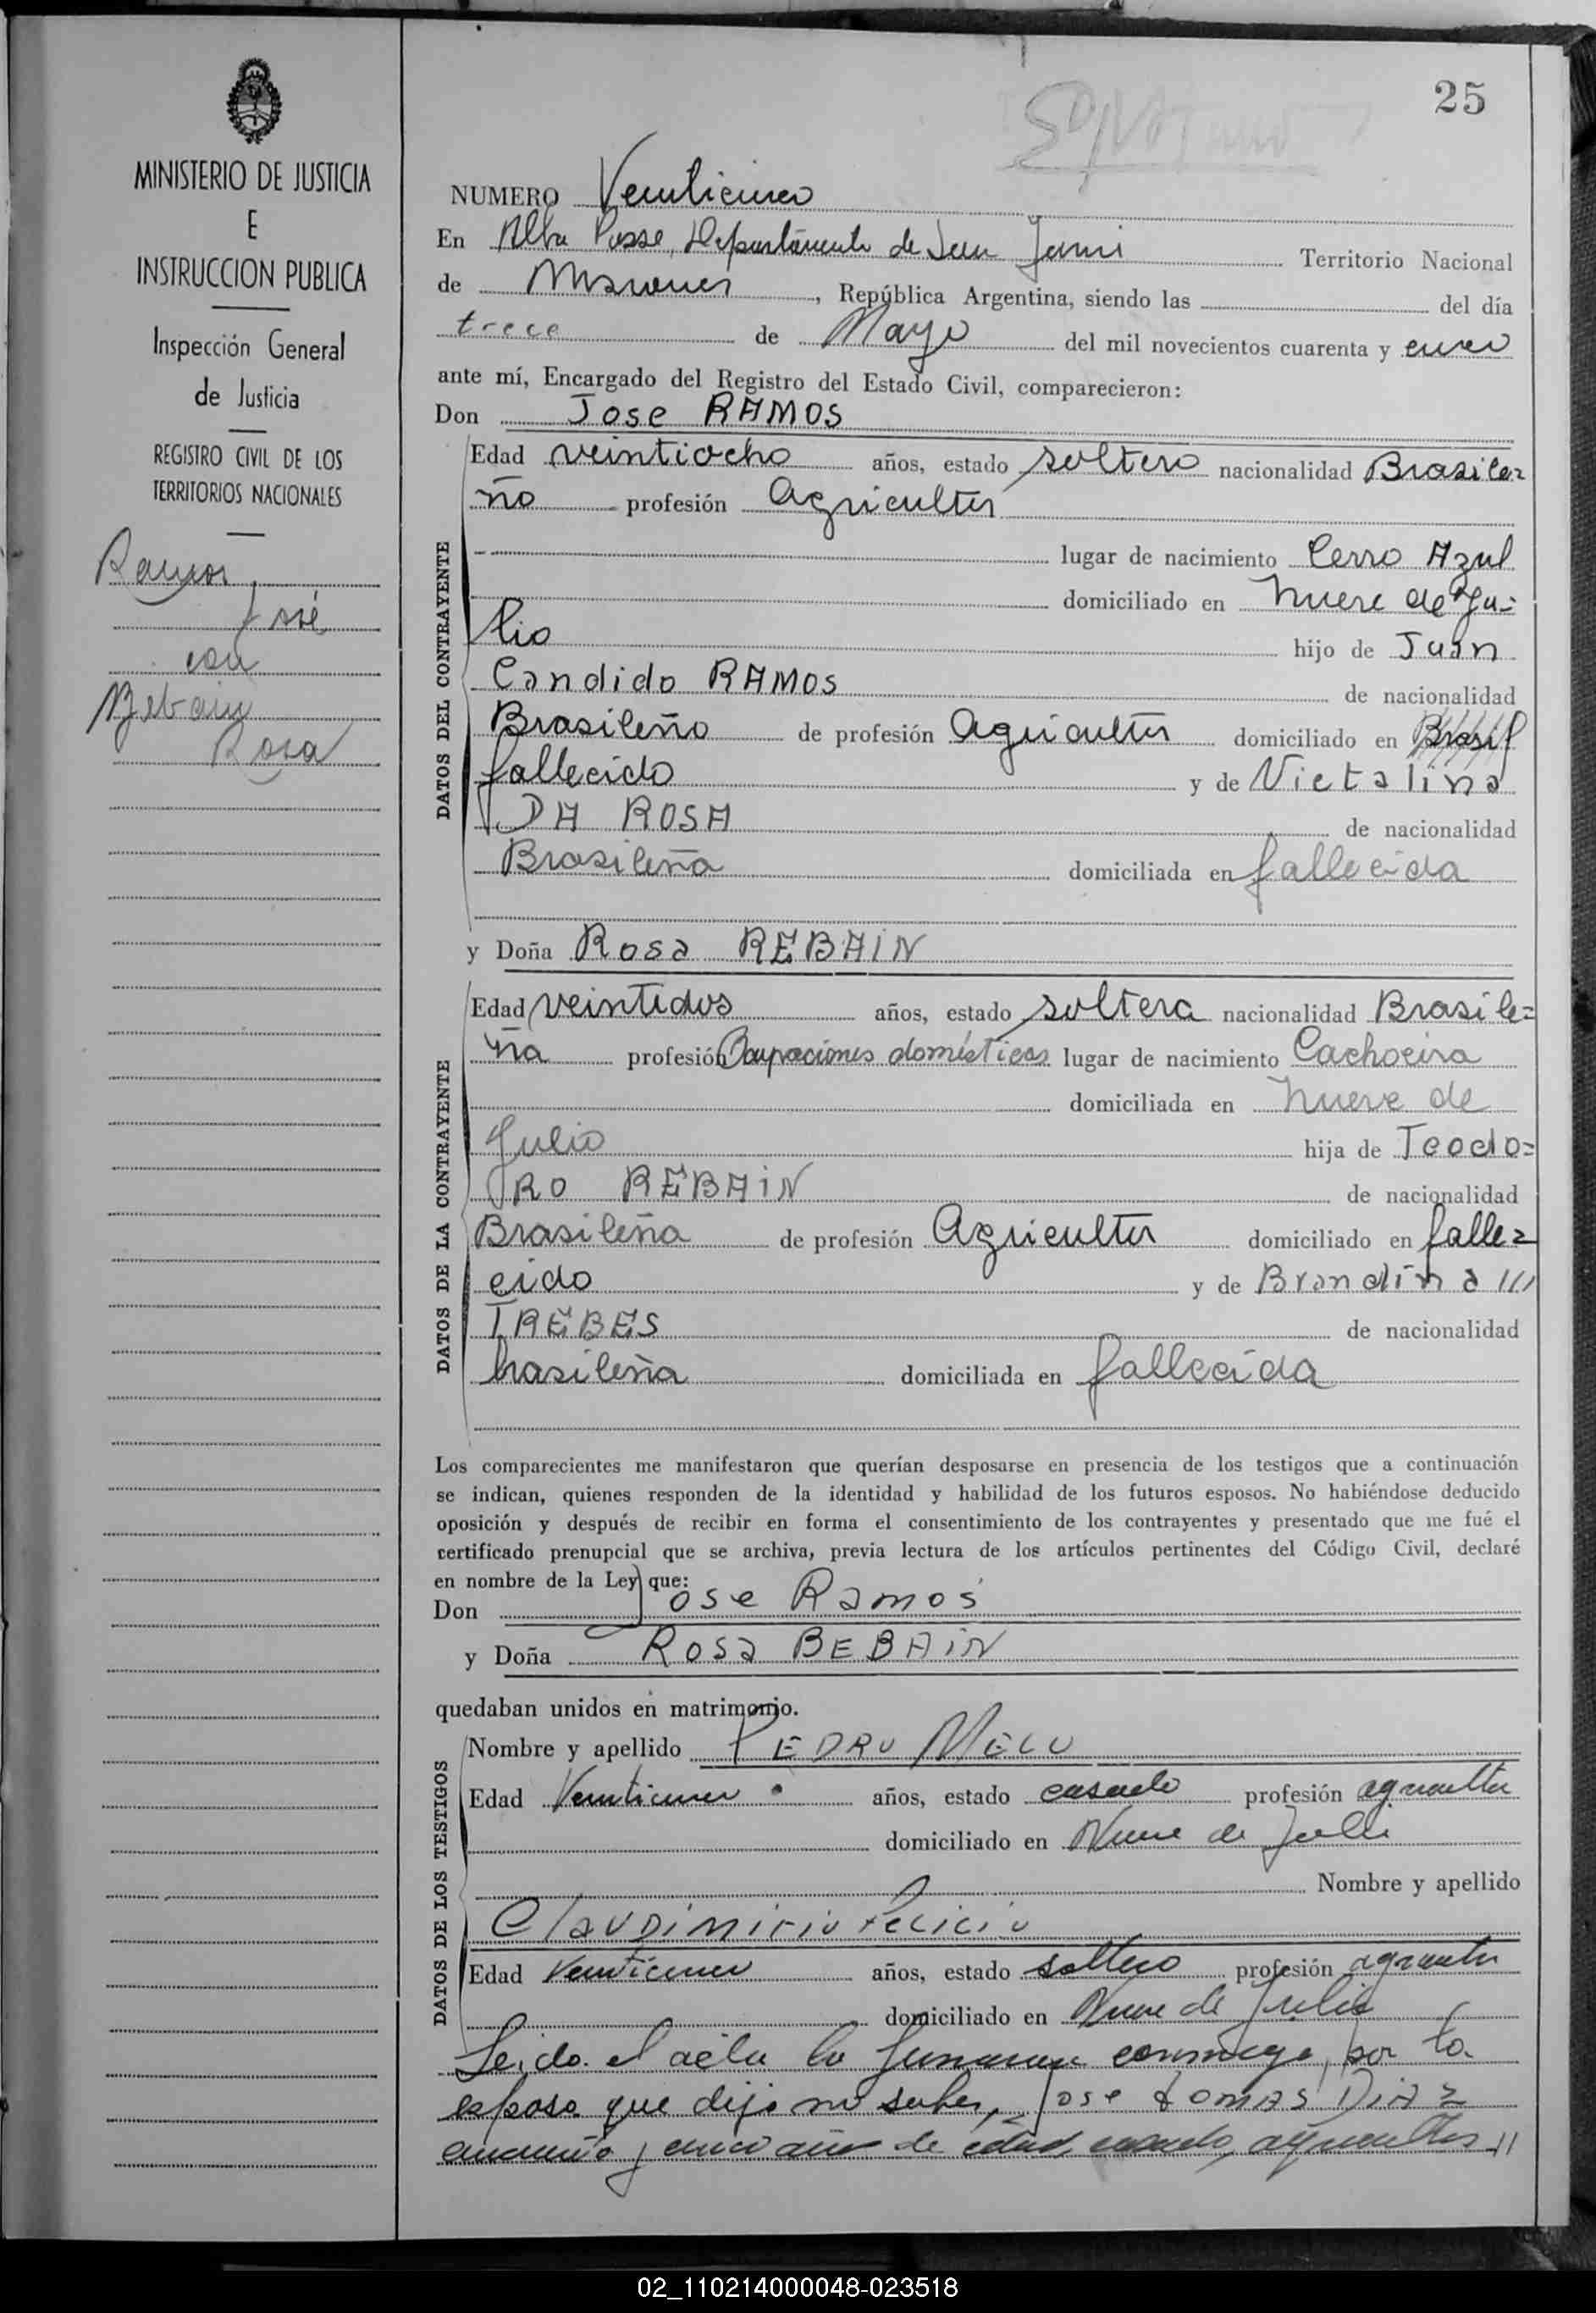 25
MINISTERIO DE JUSTICIA
E
INSTRUCCION PUBLICA
Inspección General
de Justicia
REGISTRO CIVIL DE LOS
TERRITORIOS NACIONALES
Ramos
José
con
Bebain
Rosa
NUMERO Veinticinco
En Alba Posse, Departamento de San Javier Territorio Nacional
de Misiones, República Argentina, siendo las del día
trece de Mayo del mil novecientos cuarenta y cinco
ante mí, Encargado del Registro del Estado Civil, comparecieron:
Don Jose RAMOS
DATOS DEL CONTRAYENTE
Edad veintiocho años, estado soltero nacionalidad Brasile=
ño profesión Agricultor
lugar de nacimiento Cerro Azul
domiciliado en Nueve de Ju=
lio hijo de Juan
Candido RAMOS de nacionalidad
Brasileño de profesión Agricultor domiciliado en Brasil
fallecido y de Victalina
DA ROSA de nacionalidad
Brasileña domiciliada en fallecida
y Doña Rosa REBAIN
DATOS DE LA CONTRAYENTE
Edad veintidos años, estado soltera nacionalidad Brasile=
ña profesión Ocupaciones domésticas lugar de nacimiento Cachoeira
domiciliada en Nueve de
Julio hija de Teodo=
RO REBAIN de nacionalidad
Brasileña de profesión Agricultor domiciliado en falle=
cido y de Brandina
TREBES de nacionalidad
brasileña domiciliada en fallecida
Los comparecientes me manifestaron que querían desposarse en presencia de los testigos que a continuación
se indican, quienes responden de la identidad y habilidad de los futuros esposos. No habiéndose deducido
oposición y después de recibir en forma el consentimiento de los contrayentes y presentado que me fué el
certificado prenupcial que se archiva, previa lectura de los artículos pertinentes del Código Civil, declaré
en nombre de la Ley que:
Don Jose Ramos
y Doña Rosa BEBAIN
quedaban unidos en matrimonio.
DATOS DE LOS TESTIGOS
Nombre y apellido PEDRO MELO
Edad Veinticinco años, estado casado profesión agricultor
domiciliado en Nueve de Julio
Nombre y apellido
Edad Veinticinco años, estado soltero profesión agricultor
domiciliado en Nueve de Julio
Leida el acta la firmaron conmigo, por la
esposa que dijo no saber, Jose tomas DIAZ
cincuenta y cinco años de edad, casado, agricultor
02_110214000048-023518